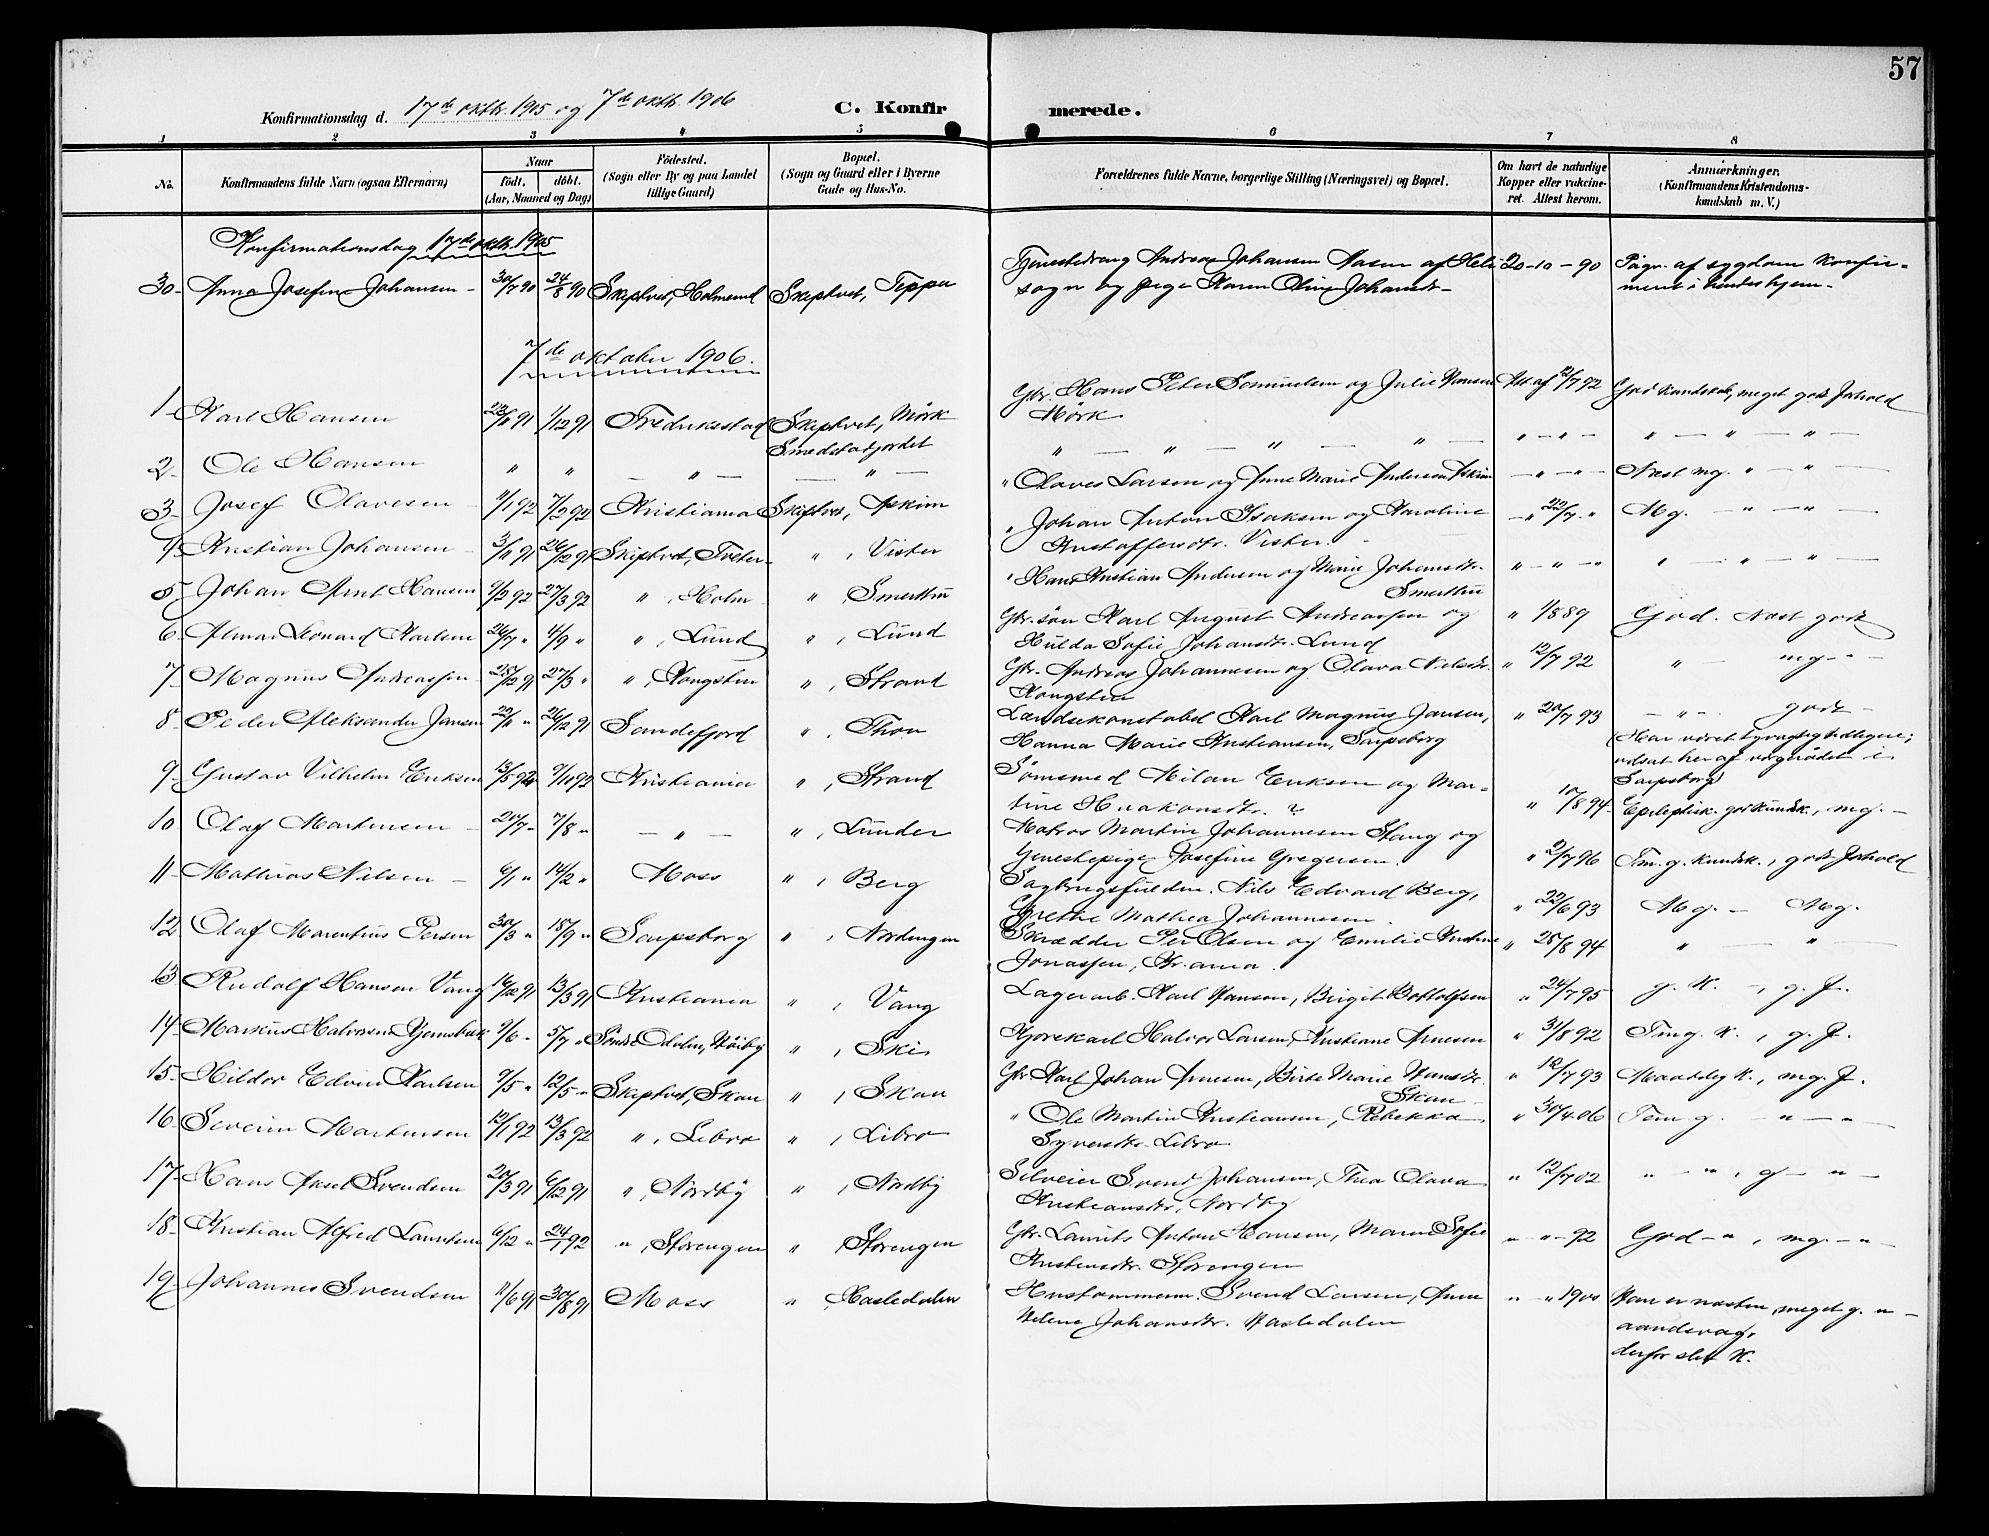 57
Konfirmationsdag d. 17de oktbr. 1905 og 7de oktbr. 1906
C. Konfirmerede.
1 2 3 4 5 6 7 8
No. Konfirmandens fulde Navn (ogsaa Efternavn) Naar født. døbt. (Aar, Maaned og Dag) Fødested. (Sogn eller By og paa Landet tillige Gaard) Bopæl. (Sogn og Gaard eller i Byerne Gade og Hus-No. Forældrenes fulde Navne, borgerlige Stilling (Næringsvei) og Bopæl. Om havt de naturlige Kopper eller vaccineret. Attest herom. Anmærkninger. (Konfirmandens Kristendomskundskab m. V.)
Konfirmationsdag 17de oktb. 1905
30 Anna Josefine Johansen 30/7 90 24/8 90 Skiptvet, Holmsend Skiptvet, Teppa Tjenestedreng Andreas Johansen Aasen af Heli sogn og pige Karen Oline Johansdr. 20-10-90 Pågr. af sygdom konfirmert i hendes hjem.
7de oktober 1906.
1 Karl Hansen 23/11 91 1/12 91 Fredrikstad Skiptvet, Mörk Smedstadjordet Gbr. Hans Peter Samuelsen og Julie Hansen Mörk Att. af 12/7 92 God kundskab, meget godt Forhold
2 Ole Hansen " " " " " " " "
3 Josef Olavesen 11/1 92 7/2 92 Kristiania Skiptvet, Askim " Olaves Larsen og Anne Marie Andersen Askim " Næst mg. " "
4 Kristian Johansen 3/11 91 26/12 91 Skiptvet, Tveter " , Vister " Johan Anton Isaksen og Karoline Kristoffersdtr. Vister. " 22/7 " Mg. " "
5 Johan Arnt Hansen 9/2 92 27/3 92 " , Holm " , Smertliu " Hans Kristian Andersen og Marie Johansdtr. Smertliu " " " "
6 Almar Leonard Karlsen 26/7 " 4/9 " " , Lund " , Lund Gbr. søn Karl August Andreassen og Hulda Sofie Johansdtr. Lund " 1/8 89 God. Næst godt
7 Magnus Andreassen 28/12 91 27/3 " " , Kongsten " , Strand Gbr. Andreas Johannesen og Olava Nilsdtr. Kongsten " 12/7 92 " mg. "
8 Peder Aleksander Jansen 22/11 " 26/12 91 Sandefjord " , Thon Landskonstabel Karl Magnus Jansen, Hanna Marie Kristiansen, Sarpsborg " 20/7 93 " godt
(Har været hidsat her af vergerådet i Sarpsborg)
9 Gustav Vilhelm Eriksen 13/5 92 9/10 92 Kristiania " , Strand Sömsmed Milan Eriksen og Martine Haakonsdtr. ? " 10/8 94 Epileptisk. god Kundsk., mg.
10 Olaf Martinsen 20/7 " 7/8 " " " , Lunder Matros Martin Johannesen Stang og tjenestepige Josefine Gregersen. " 2/7 96 Tm. g. kundsk., godt Forhold
11 Mathias Nilsen 6/1 " 14/2 " Moss " , Berg Nils Edvard Berg, Grethe Mathea Johannesen. " 22/6 93 Mg. Mg.
12 Olaf Marentius Persen 30/3 " 18/9 " Sarpsborg " , Nordengen Skrædder Per Olsen og Emilie Kristine Jonassen, Kr.ania. " 28/8 94 " "
13 Rudolf Hansen Vang 16/12 91 13/3 91 Kristiania " , Vang Lagerarb. Karl Hansen, Birgit Bottolfsen " 24/7 95 g. K. , g. F.
14 Markus Halvorsen 9/6 " 5/7 " Söndre Odalen, " , Ski Kjørekarl Halvor Larsen, Kristiane Arnesen " 31/8 92 Tm g. K. , g. F.
15 Hildor Edvin Karlsen 9/5 " 12/5 " Skiptvet, Skau " , Skau Gbr Karl Johan Arnesen, Birte Marie Hansdtr. Skau " 12/7 93 Maadelig K., mg. F.
16 Severin Martinsen 12/1 92 13/3 92 " , Libro " , Libro " Ole Martin Kristiansen, Rebekka Syversdtr. Libro " 30/4 06 Tem g. " "
17 Hans Aksel Svendsen 20/3 91 6/12 91 " , Nordby " , Nordby Selveier Svend Johansen, Thea Olava Kristiansdtr, Nordby " 12/7 02 " " , g "
18 Kristian Alfred Lauritsen 6/12 " 24/1 92 " , Storengen " , Storengen Gbr. Laurits Anton Hansen, Maren Sofie Kristensdtr. Storengen " " 92 God " , mg. "
19 Johannes Svendsen 11/6 91 30/8 91 Moss " , Hasledalen Hustømmerm. Svend Larsen, Anne Helene Johansdtr. Hasledalen " " 1900 Han er næsten aandsvag, derfor slet K. meget g. "